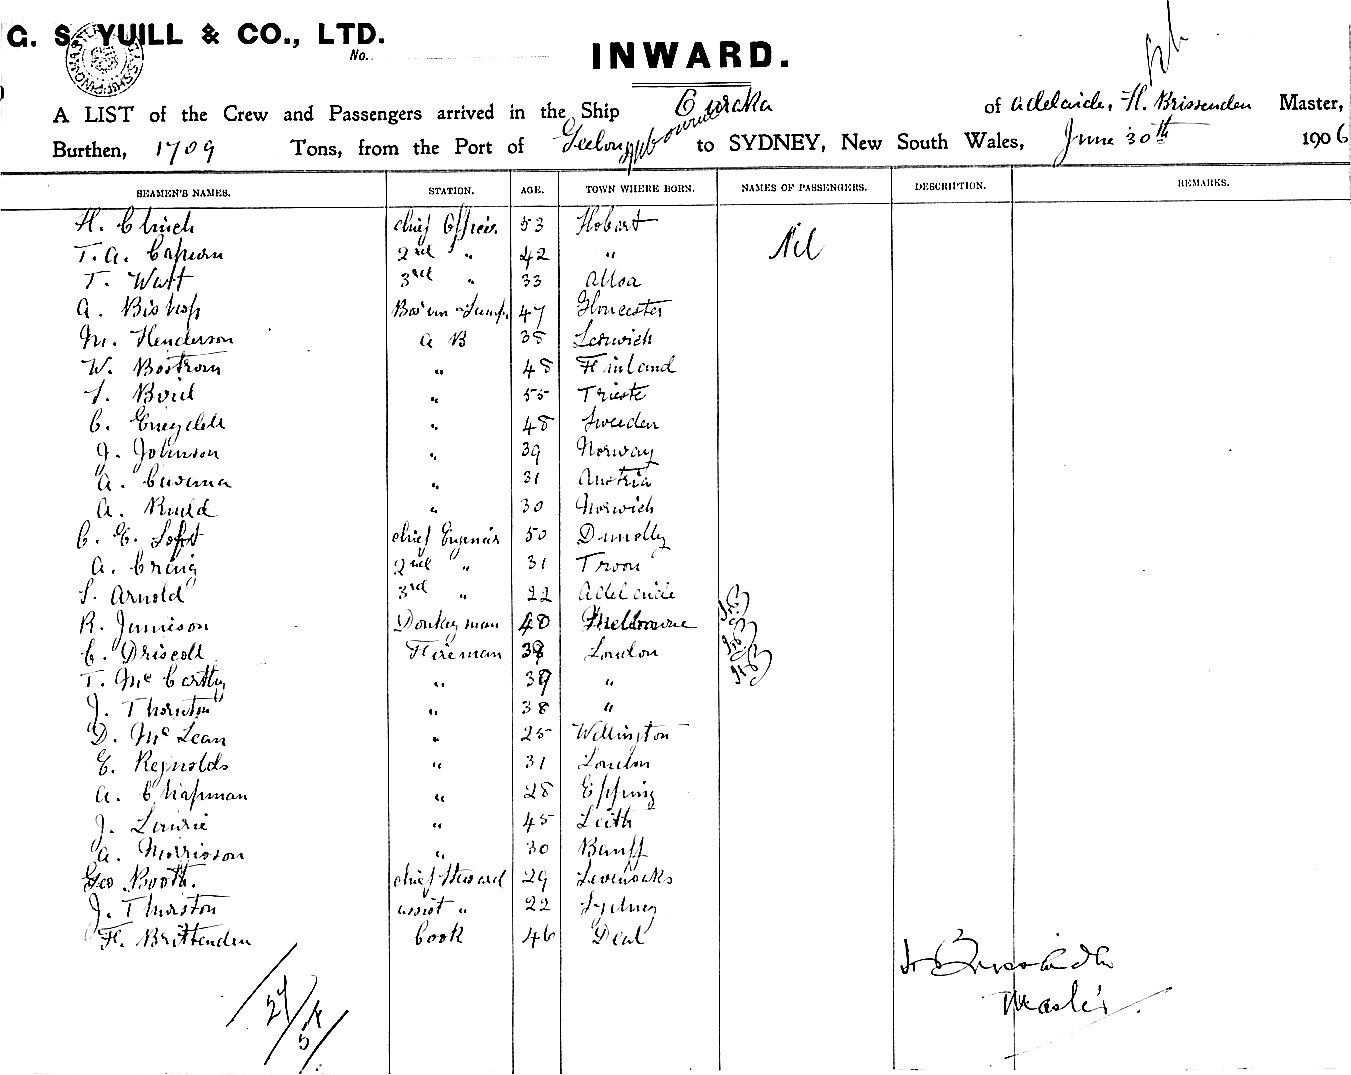 G. S. YUILL & CO., LTD.
No.
INWARD.
A LIST of the Crew and Passengers arrived in the Ship Eureka of Adelaide, H. Brissenden Master,
Burthen, 1709 Tons, from the Port of Geelong to SYDNEY, New South Wales, June 30th 1906
SEAMEN'S NAMES. STATION. AGE. TOWN WHERE BORN. NAMES OF PASSENGERS. DESCRIPTION. REMARKS.
H. Clinch chief Officer 53 Hobart Nil
T. A. Capurn 2nd " 42 "
T. Watt 3rd " 33 Alloa
A. Bishop Bos'un & Lamps 47 Gloucester
M. Henderson A B 38 Lerwick
W. Bostrom " 48 Finland
" 55 Trieste
C. " 48 Sweden
J. Johnson " 39 Norway
A. " 31 Austria
A. " 30 Norwich
C. E. Loft chief Engineer 50 Dunolly
A. Craig 2nd " 31 Troon
S. Arnold 3rd " 22 Adelaide
R. Jamieson Donkeyman 40 Melbourne
C. Driscoll Fireman 38 London
T. McCarthy " 39 "
J. Thornton " 38 "
D. McLean " 25 Wellington
E. Reynolds " 31 London
A. Chapman " 28 Epping
J. Laurie " 45 Leith
A. Morrisson " 30 Banff
Geo Booth. chief Steward 29 Sevenoaks
J. Thurston assist " 22 Sydney
H. Brittenden Cook 46 Deal
H Brissenden
Master.